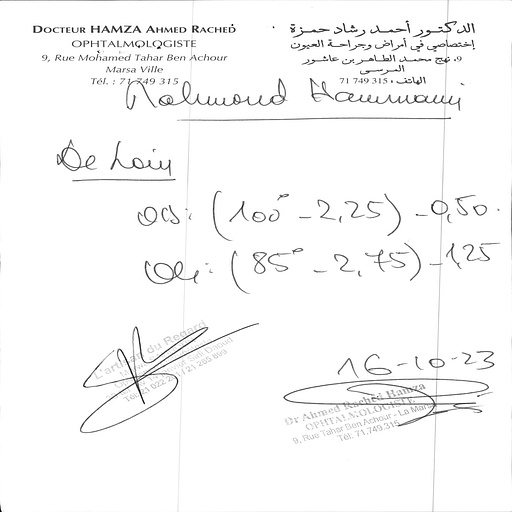 DOCTEUR HAMZA AHMED RACHED
OPHTALMOLOGISTE
9, Rue Mohamed Tahar Ben Achour
Marsa Ville
Tél. : 71 749 315
الدكتور أحمد رشاد حمزة
إختصاصي في أمراض وجراحة العيون
9، نهج محمد الطاهر بن عاشور
المرسى
الهاتف : 315 749 71
Mahmoud Hammami
De Loin
OD: (100° -2,25) -0,50.
OG: (85° -2,75) -1,25
16-10-23
L'artisan du Regard
Dr Ahmed Rached Hamza
OPHTALMOLOGISTE
9, Rue Tahar Ben Achour - La Marsa
Tél: 71.749.315